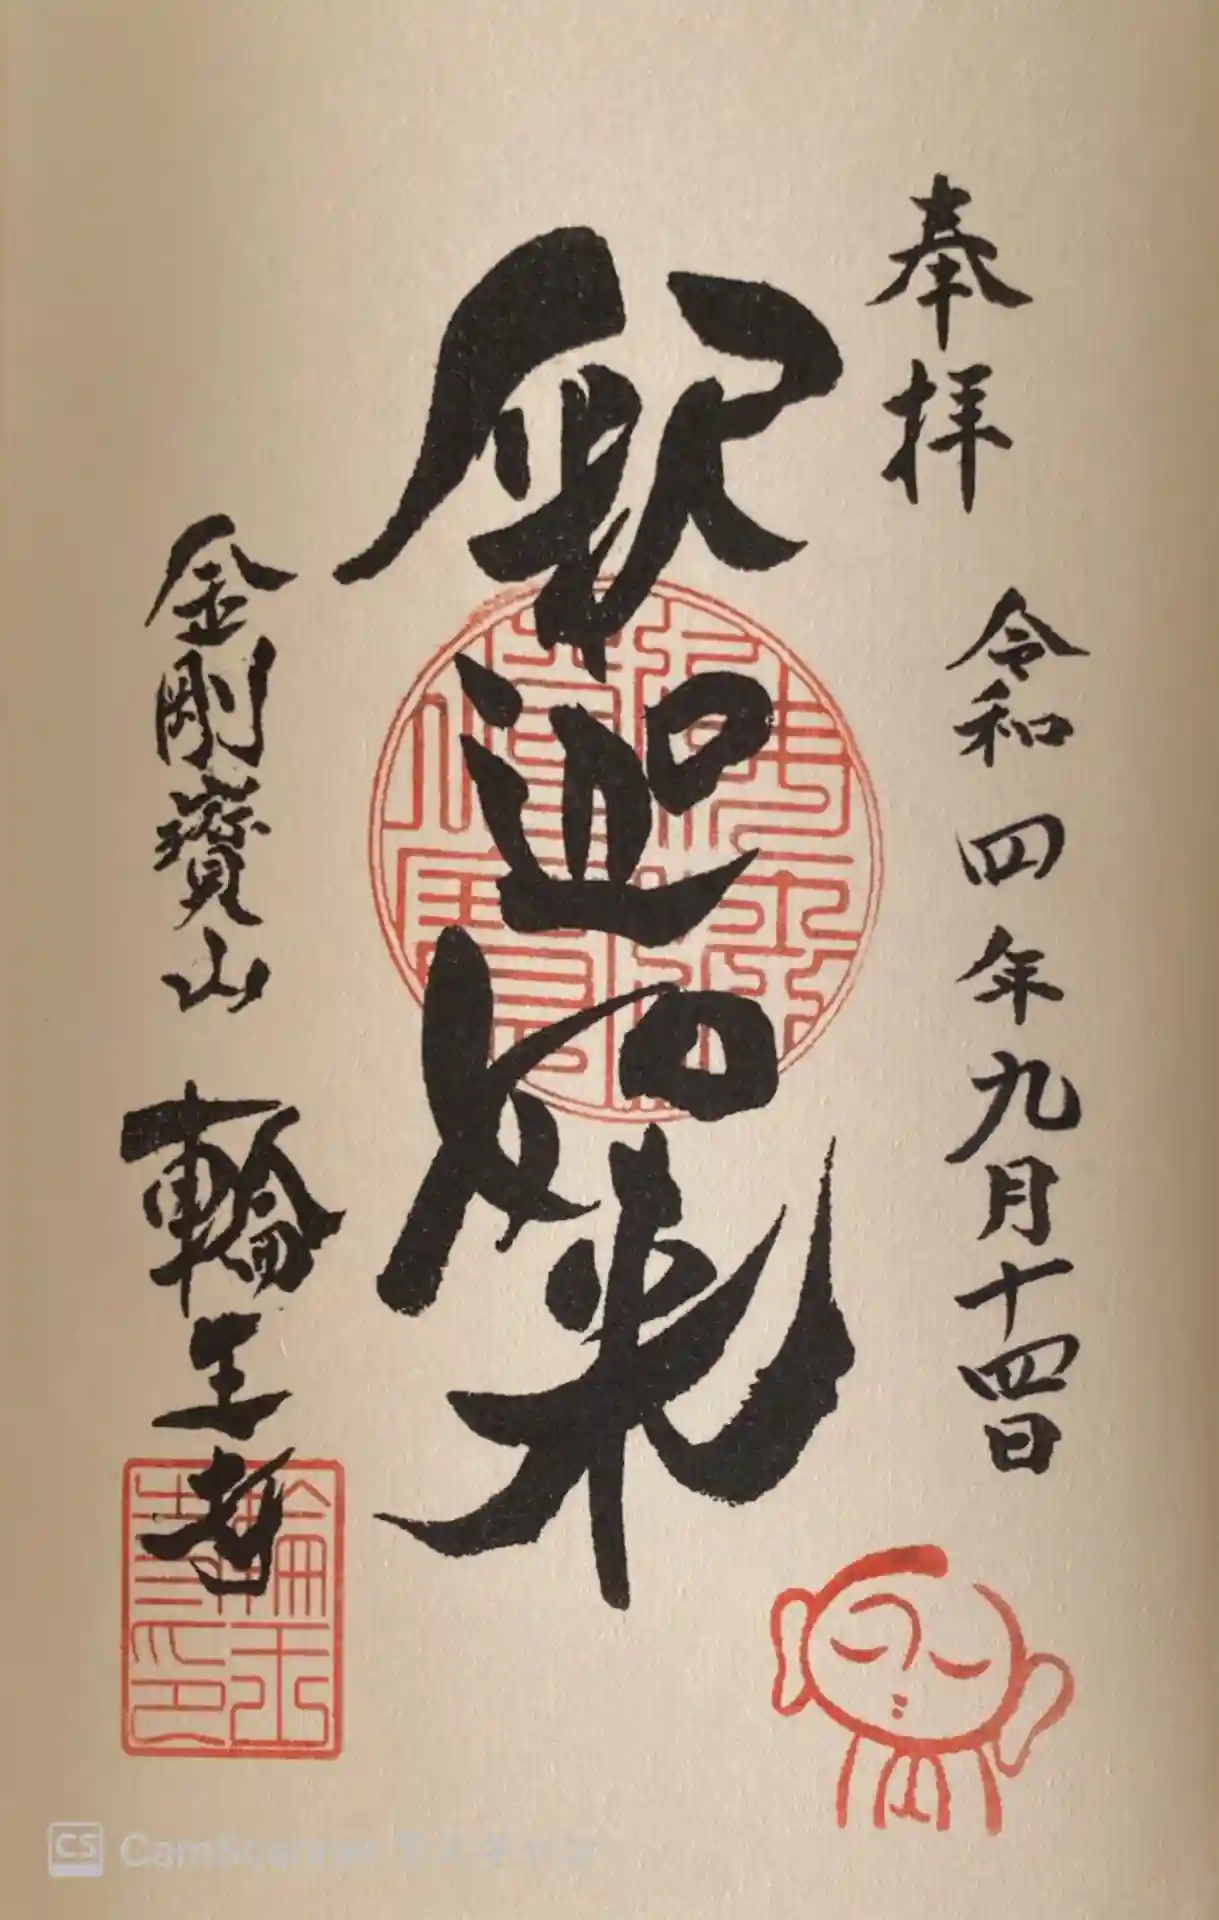 奉拝
令和四年九月十四日
釈迦如来
金剛寶山
輪王寺
CS CamScanner でスキャン